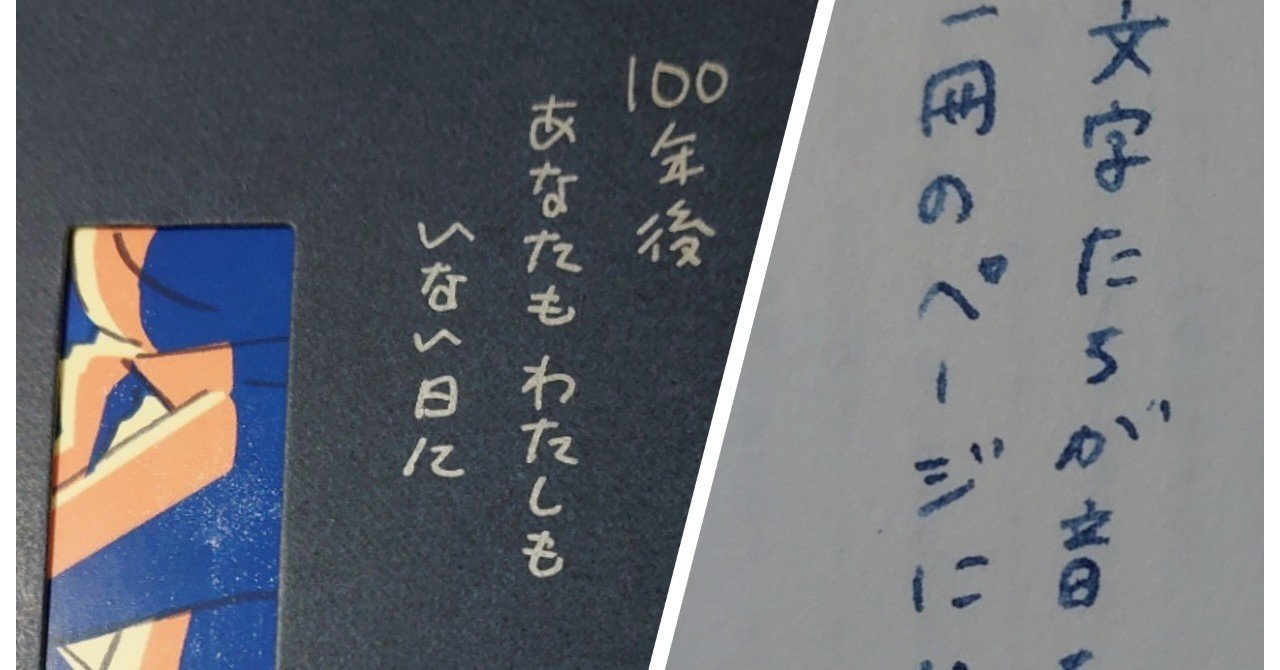 100年後
あなたも わたしも
いない日に
文字たちが音
一冊のページに